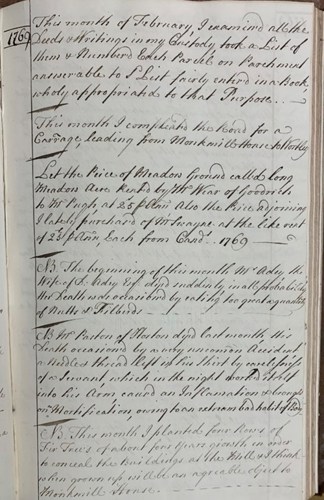 1769
This month of February, I examind all the
Deeds & Writings in my Custody took a List of
them & Number'd Each Parcel on Parchment
answerable to List fairly enter'd in a Book,
wholy appropriated to that Purpose.
This month I compleated the Road for a
Carriage, leading from Monkmill House to
Let the Piece of Meadow Ground call'd long
Meadow Acre Rented by Mr War of
to Mr Pugh at Also the Piece adjoining
I lately purchas'd of Mr Swayne at the like rent
of Each from 1769
NB. The beginning of this month Mrs Adey the
Wife of Adey Esqr dyed suddenly in all probability
the Death was occasion'd by eating too great a quantity
of Nutts & Filberds
NB Mr Paston of Horton dyed last month His
Death occasion'd by a very uncomon Accident
a Needless thread left in his Shirt by carelessness
of a Servant which in the night work'd itself
into his Arm caus'd an Inflamation & brought
on Mortification owing to an extream bad habit of Body
NB. This month I planted four Rows of
Fir Trees of about four years growth in order
to conceal the Buildings at the Hill & I think
when grown up will be an agreable object to
Monkmill House.